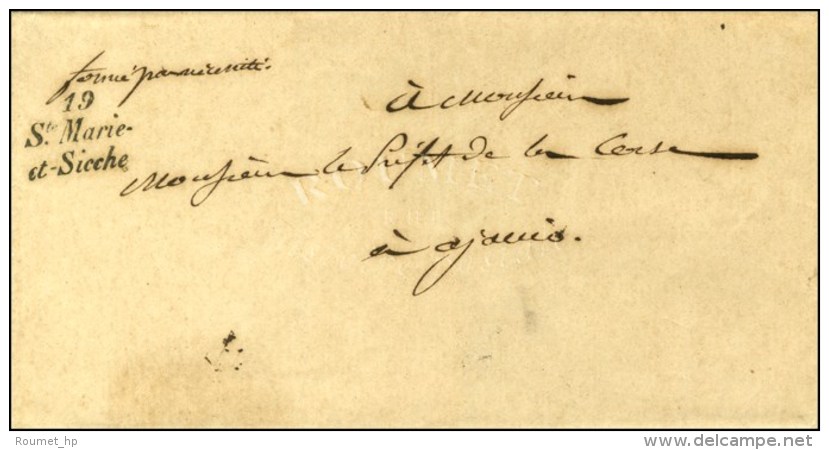 fermé par nécessité.
19
Ste Marie-
et-Sicche
à Monsieur
Monsieur le Préfet de la Corse
à ajaccio.
ROUMET
Roumet_hp
delcampe.net